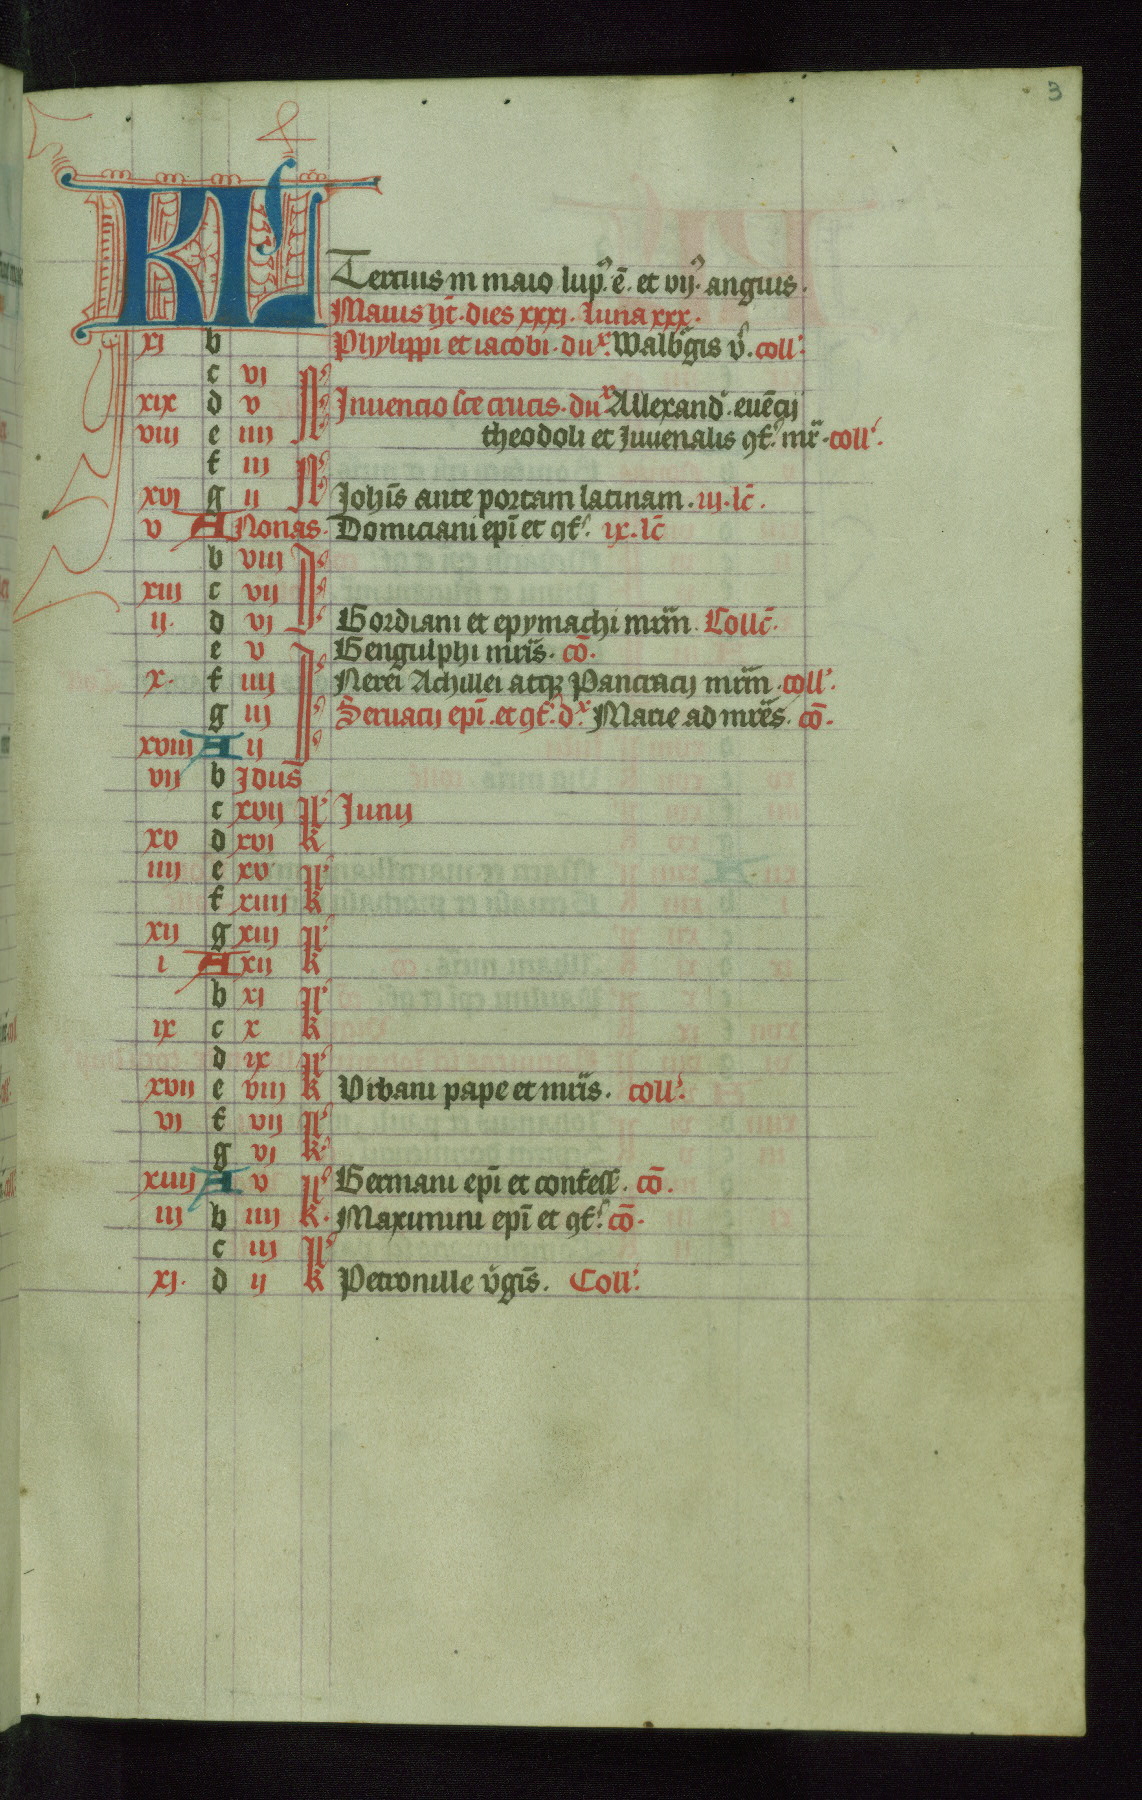 3
KL
Tercius in maio lup᷒. ē. et vij᷒. anguis.
Maius ht̄. dies xxxi. luna xxx.
xi b Phylippi et iacobi. dux. Walbgis v̄. coll'.
c vi N'
xix d v Inuencio sce crucis. dux Allexand'. euēcij
viii e iiii theodoli et Juuenalis qf'. mr̄. coll'.
f iii N'
xvi g ii Johīs ante portam latinam. iii. lc̄.
v A Nonas. Domiciani epī et qf'. ix. lc̄
b viii Id'
xiii c vii
ii. d vi Gordiani et epymachi mrm̄. Collc̄.
e v Gengulphi mris̄. cō.
x. f iiii Nerei Achillei atq; Pancracij mrm̄. coll'.
g iii Seruacij epī. et qf'. dx. Marie ad mres̄. cō.
xviii A ii
vii b Idus
c xvii kl' Junij
xv d xvi k
iiii e xv kl'
f xiiii k
xii g xiii kl'
i A xii k
b xi kl'
ix c x k
d ix kl'
xvii e viii k Vrbani pape et mris̄. coll'.
vi f vii kl'
g vi k'
xiiii A v kl' Germani epī et confess'. cō.
iii b iiii k. Maximini epī et qf'. cō.
c iii kl'
xi. d ii k Petronille v̄gis̄. Coll'.